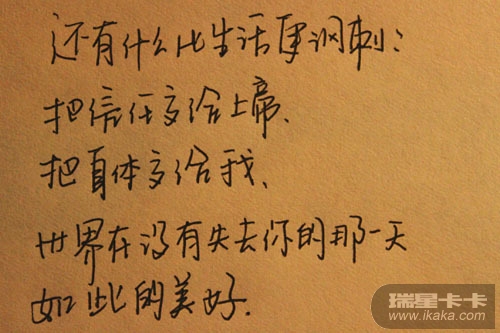 还有什么比生活更讽刺：
把信任交给上帝、
把身体交给我、
世界在没有失去你的那一天
如此的美好.
瑞星卡卡
www.ikaka.com